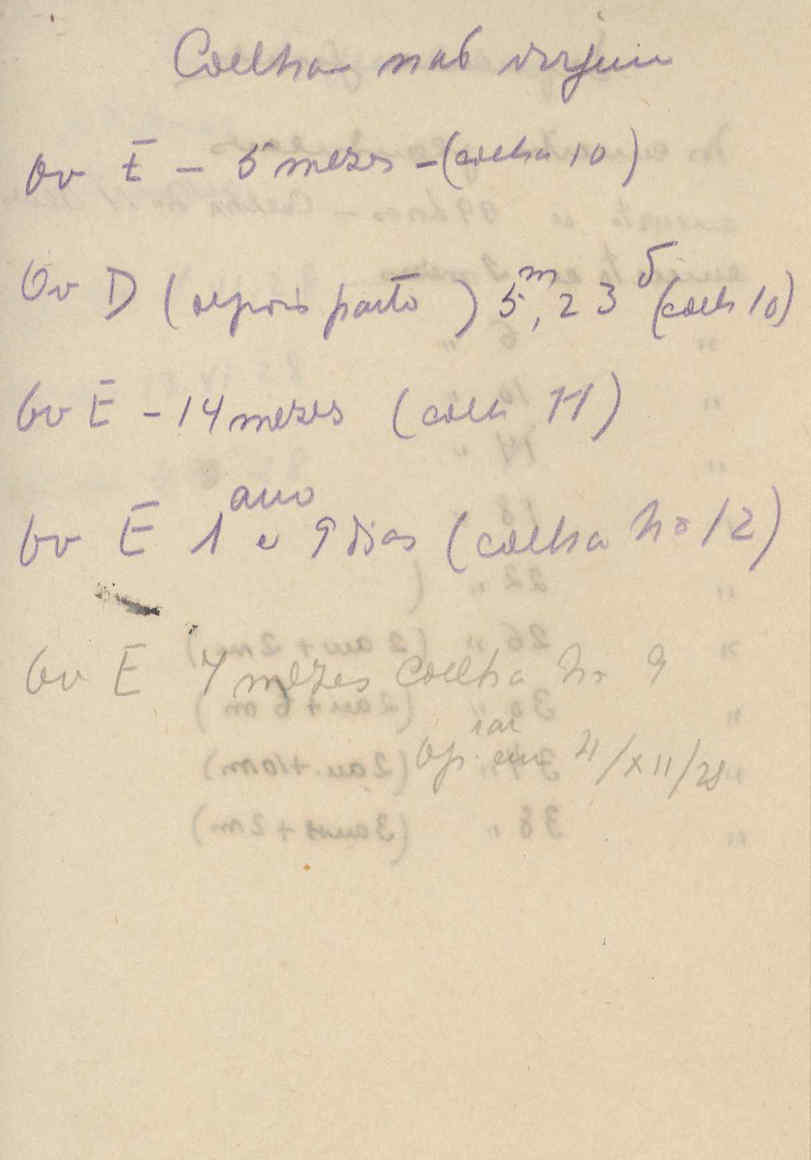 Coelha não virgem
Ov E - 5 mezes - (coelha 10)
Ov D (depois parto) 5m, 23d (coelh 10)
Ov E - 14 mezes (coelh 11)
Ov E 1 ano e 9 dias (coelha No 12)
Ov E 7 mezes Coelha No 9
op. em 4/XII/28